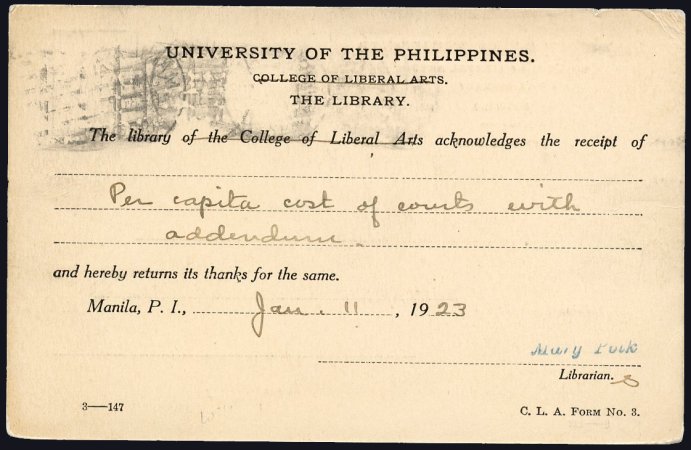 UNIVERSITY OF THE PHILIPPINES.
COLLEGE OF LIBERAL ARTS.
THE LIBRARY.
The library of the College of Liberal Arts acknowledges the receipt of
Per capita cost of courts with
addendum.
and hereby returns its thanks for the same.
Manila, P. I., Jan. 11, 1923
Mary Polk
Librarian.
3—147
C. L. A. FORM NO. 3.